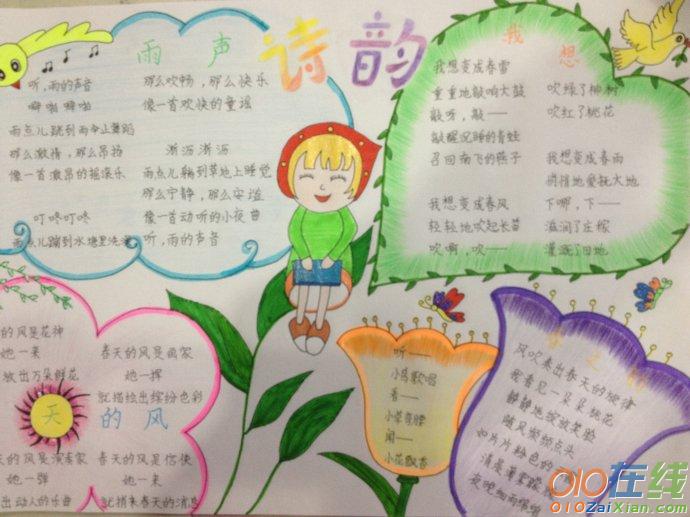 诗韵
雨声
听,雨的声音
噼啪 噼啪
雨点儿跳到雨伞上舞蹈
那么激情,那么昂扬
像一首激昂的摇滚乐
叮咚叮咚
雨点儿蹦到水塘里洗澡
那么欢畅,那么快乐
像一首欢快的童谣
淅沥淅沥
雨点儿躺到草地上睡觉
那么宁静,那么安谧
像一首动听的小夜曲
听,雨的声音
我想
我想变成春雷
重重地敲响大鼓
敲呀,敲——
敲醒沉睡的青蛙
召回南飞的燕子
我想变成春风
轻轻地吹起长笛
吹啊,吹——
吹绿了柳树
吹红了桃花
我想变成春雨
悄悄地爱抚大地
下哪,下——
滋润了庄稼
灌溉了田地
天的风
的风是花神
她一来
放出万朵鲜花
春天的风是画家
她一挥
就描绘出缤纷色彩
的风是演奏家
她一弹
出动人的乐曲
春天的风是信使
她一来
就捎来春天的消息
听——
小鸟歌唱
看——
小草弯腰
闻——
小花飘香
春之
风吹来出春天的旋律
我看见一朵朵桃花
静静地绽放笑脸
随风频频点头
如片片粉色的
010在线
010ZaiXian.com